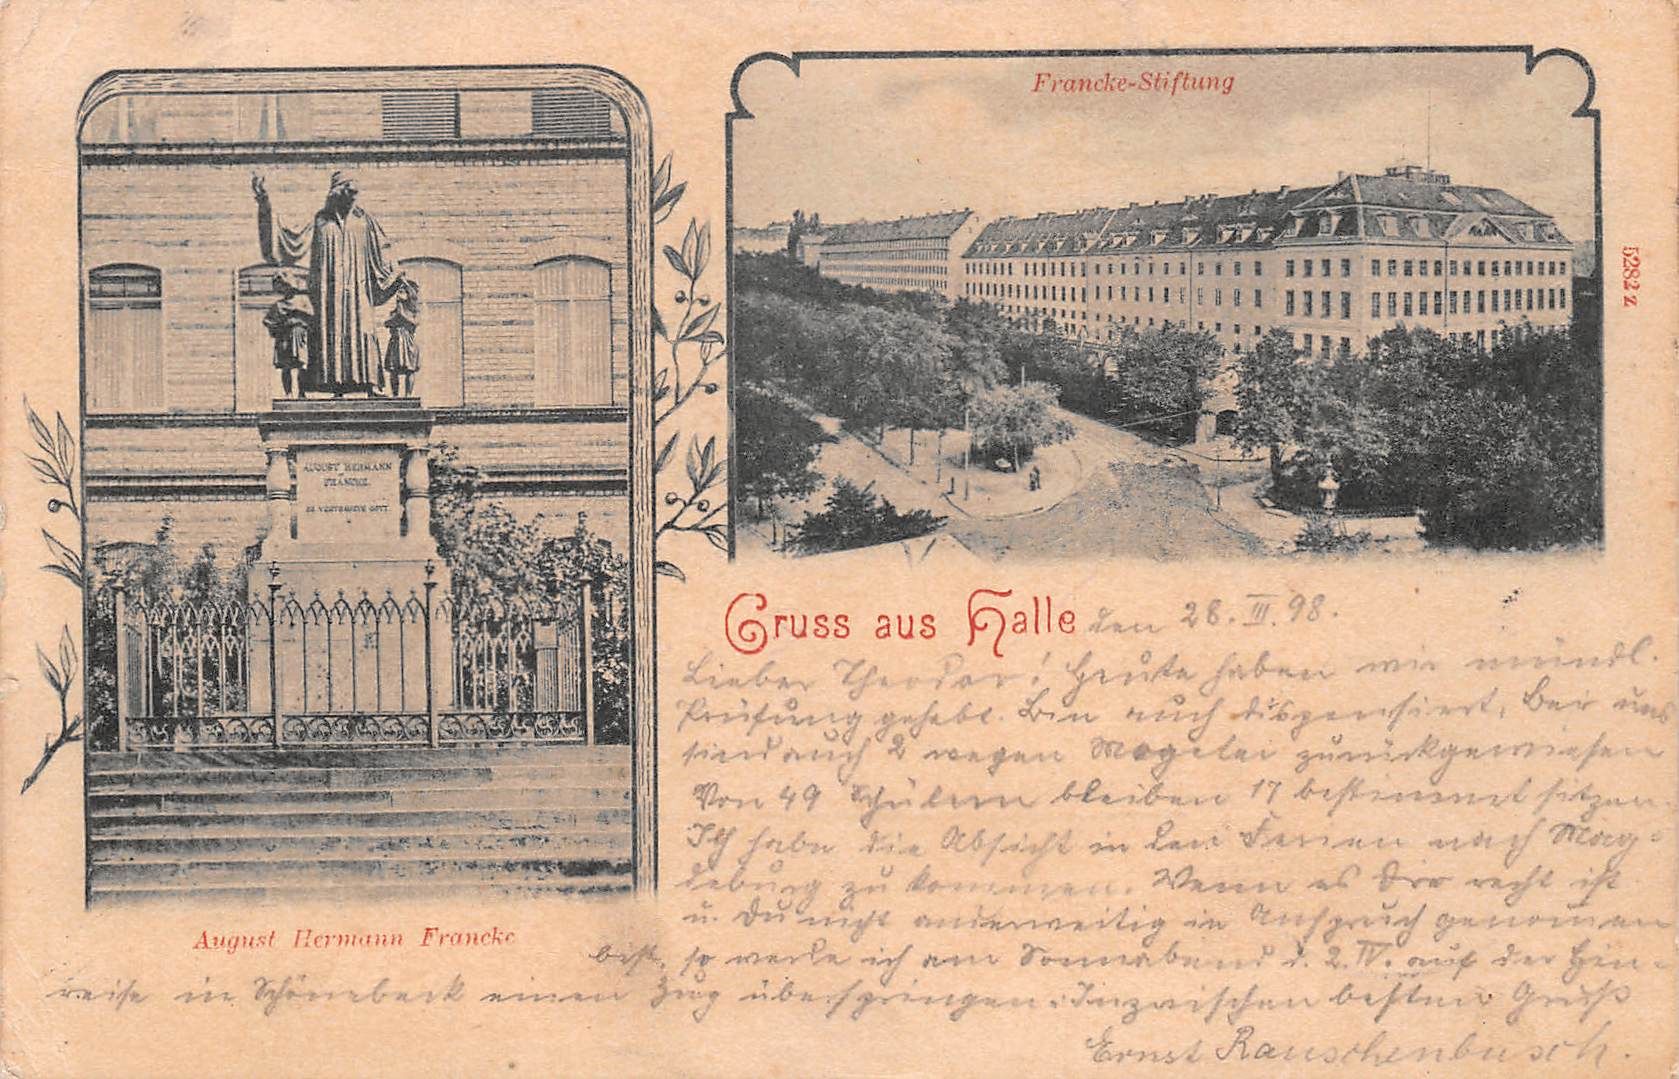 Francke-Stiftung
5282 z
AUGUST HERMANN
FRANCKE.
ER VERTRAUETE GOTT
August Hermann Francke
Gruss aus Halle den 28. III. 98.
Lieber Theodor! Heute haben wir mündl.
Prüfung gehabt. Bin auch dispensiert. Bei uns
sind auch 2 wegen Mogelei zurückgewiesen
Von 49 Schülern bleiben 17 bestimmt sitzen.
Ich habe die Absicht in den Ferien nach Mag-
deburg zu kommen. Wenn es Dir recht ist
u. Du nicht anderweitig in Anspruch genommen
bist, so werde ich am Sonnabend d. 2. IV. auf der Hin-
reise in Schönebeck einen Zug überspringen. Inzwischen besten Gruß
Ernst Rauschenbusch.